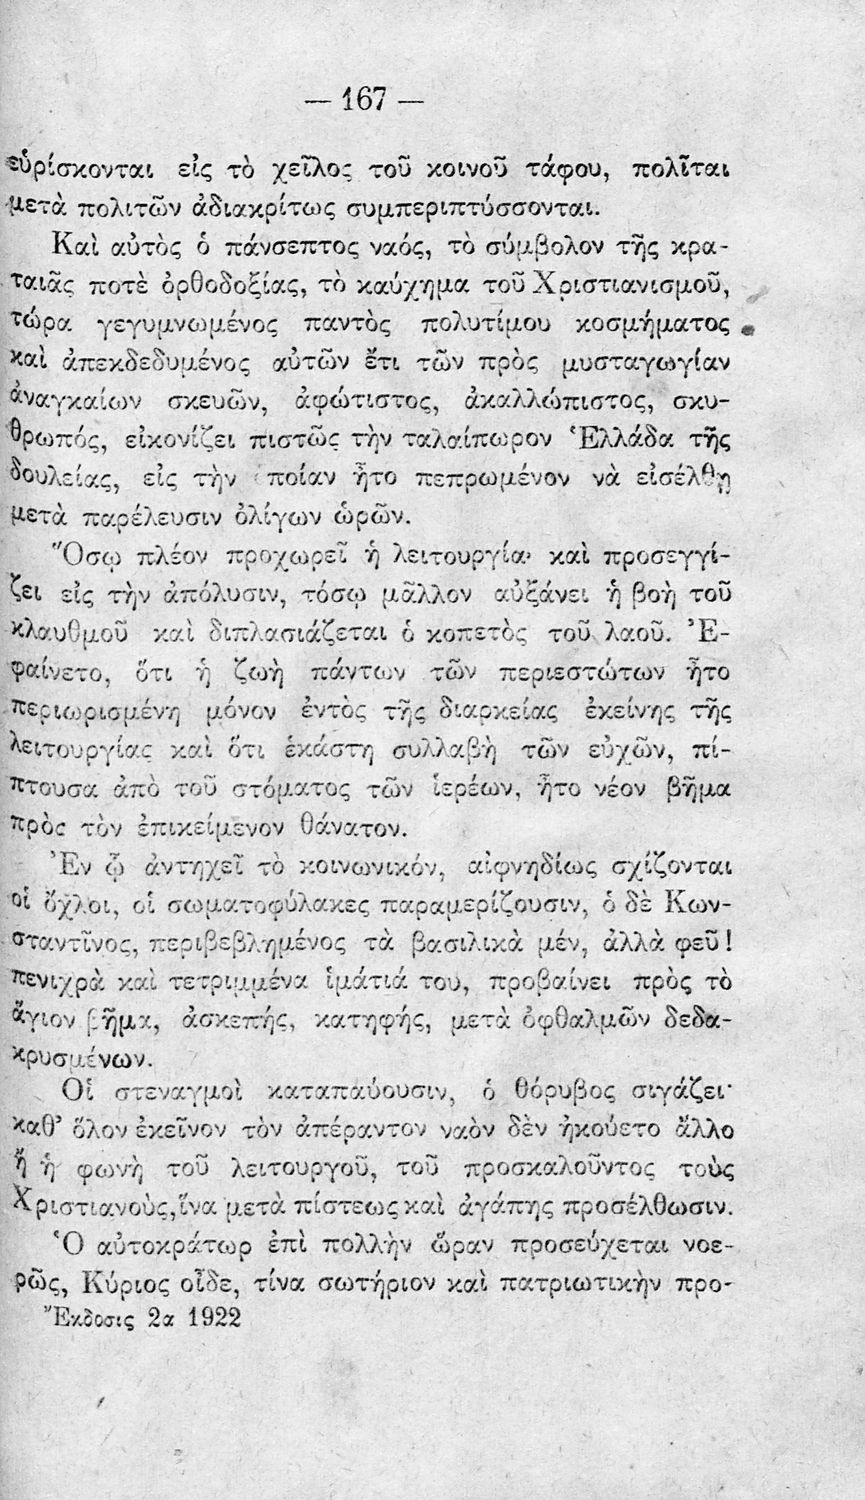 — 167 —
εὑρίσκονται εἰς τὸ χεῖλος τοῦ κοινοῦ τάφου, πολῖται
μετὰ πολιτῶν ἀδιακρίτως συμπεριπτύσσονται.
Καὶ αὐτὸς ὁ πάνσεπτος ναός, τὸ σύμβολον τῆς κρα-
ταιᾶς ποτὲ ὀρθοδοξίας, τὸ καύχημα τοῦ Χριστιανισμοῦ,
τώρα γεγυμνωμένος παντὸς πολυτίμου κοσμήματος
καὶ ἀπεκδεδυμένος αὐτῶν ἔτι τῶν πρὸς μυσταγωγίαν
ἀναγκαίων σκευῶν, ἀφώτιστος, ἀκαλλώπιστος, σκυ-
θρωπός, εἰκονίζει πιστῶς τὴν ταλαίπωρον Ἑλλάδα τῆς
δουλείας, εἰς τὴν ὁποίαν ἦτο πεπρωμένον νὰ εἰσέλθῃ
μετὰ παρέλευσιν ὀλίγων ὡρῶν.
Ὅσῳ πλέον προχωρεῖ ἡ λειτουργία· καὶ προσεγγί-
ζει εἰς τὴν ἀπόλυσιν, τόσῳ μᾶλλον αὐξάνει ἡ βοὴ τοῦ
κλαυθμοῦ καὶ διπλασιάζεται ὁ κοπετὸς τοῦ λαοῦ. Ἐ-
φαίνετο, ὅτι ἡ ζωὴ πάντων τῶν περιεστώτων ἦτο
περιωρισμένη μόνον ἐντὸς τῆς διαρκείας ἐκείνης τῆς
λειτουργίας καὶ ὅτι ἑκάστη συλλαβὴ τῶν εὐχῶν, πί-
πτουσα ἀπὸ τοῦ στόματος τῶν ἱερέων, ἦτο νέον βῆμα
πρὸς τὸν ἐπικείμενον θάνατον.
Ἐν ᾧ ἀντηχεῖ τὸ κοινωνικόν, αἰφνηδίως σχίζονται
οἱ ὄχλοι, οἱ σωματοφύλακες παραμερίζουσιν, ὁ δὲ Κων-
σταντῖνος, περιβεβλημένος τὰ βασιλικὰ μέν, ἀλλὰ φεῦ!
πενιχρὰ καὶ τετριμμένα ἱμάτιά του, προβαίνει πρὸς τὸ
ἅγιον βῆμα, ἀσκεπής, κατηφής, μετὰ ὀφθαλμῶν δεδα-
κρυσμένων.
Οἱ στεναγμοὶ καταπαύουσιν, ὁ θόρυβος σιγάζει·
καθ’ ὅλον ἐκεῖνον τὸν ἀπέραντον ναὸν δὲν ἠκούετο ἄλλο
ἢ ἡ φωνὴ τοῦ λειτουργοῦ, τοῦ προσκαλοῦντος τοὺς
Χριστιανοὺς, ἵνα μετὰ πίστεως καὶ ἀγάπης προσέλθωσιν.
Ὁ αὐτοκράτωρ ἐπὶ πολλὴν ὥραν προσεύχεται νοε-
ρῶς, Κύριος οἶδε, τίνα σωτήριον καὶ πατριωτικὴν προ-
Ἔκδοσις 2α 1922